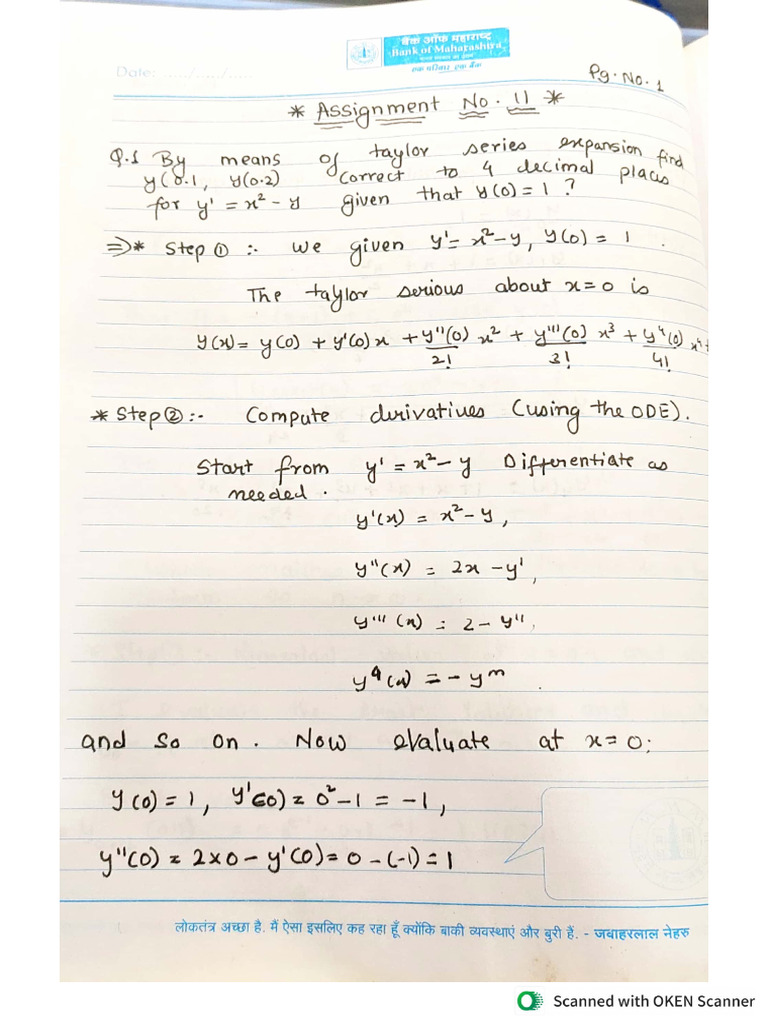 बैंक ऑफ महाराष्ट्र
Bank of Maharashtra
एक परिवार एक बैंक
Date: ..../..../....
Pg. No. 1
* Assignment No. 11 *
Q.1 By means of taylor series expansion find
y(0.1, y(0.2) correct to 4 decimal places
for y' = x² - y given that y(0) = 1 ?
⇒* Step ① :- we given y' = x² - y, y(0) = 1 .
The taylor serious about x = 0 is
y(x) = y(0) + y'(0) x + y''(0)/2! x² + y'''(0)/3! x³ + y⁴(0)/4! x⁴ +
* Step ② :- Compute derivatives (using the ODE).
Start from y' = x² - y Differentiate as
needed .
y'(x) = x² - y,
y''(x) = 2x - y',
y'''(x) = 2 - y'',
y⁴(x) = - y''' .
and so on . Now evaluate at x = 0;
y(0) = 1, y'(0) = 0² - 1 = -1,
y''(0) = 2×0 - y'(0) = 0 - (-1) = 1
लोकतंत्र अच्छा है. मैं ऐसा इसलिए कह रहा हूँ क्योंकि बाकी व्यवस्थाएं और बुरी हैं. - जवाहरलाल नेहरु
Scanned with OKEN Scanner